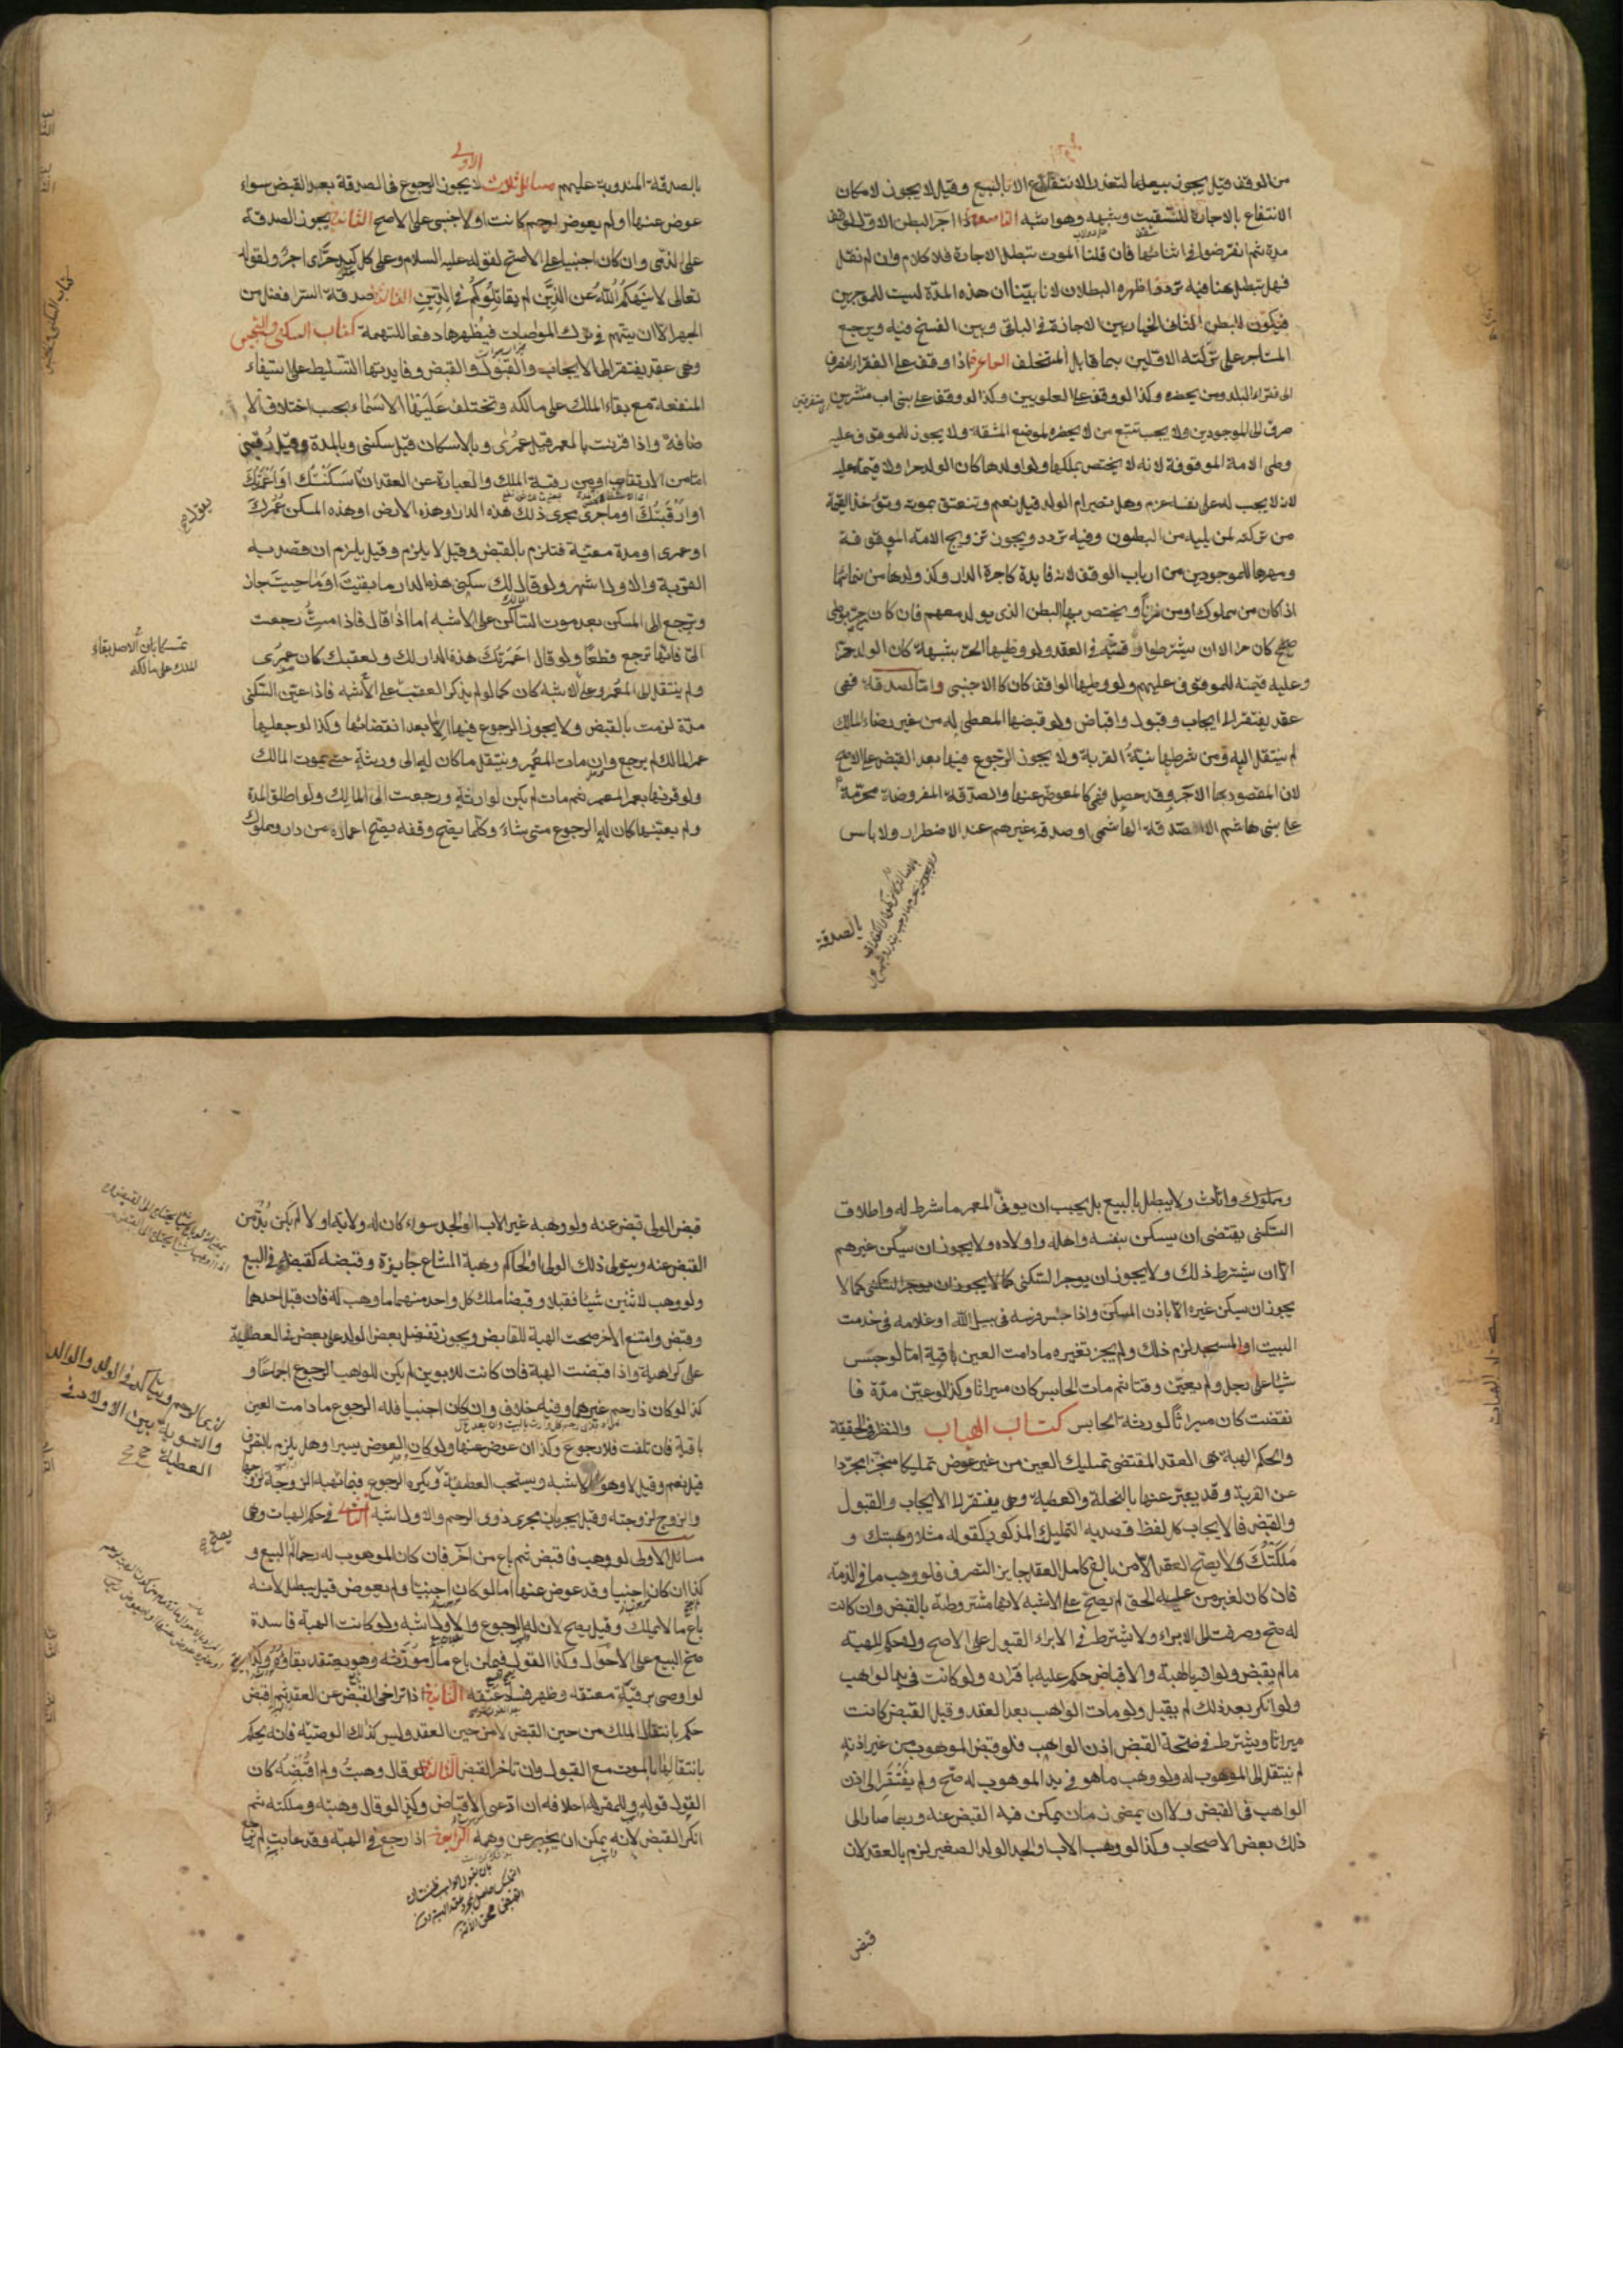 من الوقف قيل يجوز بيعها لتعذر الانتفاع الا بالبيع وقيل لا يجوز لامكان
الانتفاع بالاجارة للتسقيف وشبهه وهو اشبه التاسعة اذا اجر البطن الاول الوقف
مدة ثم انقرضوا في اثنائها فان قلنا الموت تبطل الاجارة فلا كلام وان لم نقل
فهل تبطل هنا فيه تردد اظهره البطلان لانا بينا ان هذه المدة ليست للموجرين
فيكون للبطن الثاني الخيار بين الاجازة في الباقي وبين الفسخ فيه ويرجع
المستاجر على تركة الاولين بما قابل المتخلف العاشرة اذا وقف على الفقراء انصرف
الى فقراء البلد ومن يحضره وكذا لو وقف على العلويين وكذا لو وقف على بني اب منتشرين
صرف الى الموجودين ولا يجب تتبع من لا يحضره لموضع المشقة ولا يجوز للموقوف عليه
وطى الامة الموقوفة لانه لا يختص بملكها ولو اولدها كان الولد حرا ولا قيمة عليه
لانه لا يجب له على نفسه غرم وهل تصير ام الولد قيل نعم وتنعتق بموته وتؤخذ القيمة
من تركته لمن يليه من البطون وفيه تردد ويجوز تزويج الامة الموقوفة
ومهرها للموجودين من ارباب الوقف لانه فايدة كاجرة الدار وكذا ولدها من نمائها
اذا كان من مملوك او من زنا ويختص به البطن الذي يولد معهم فان كان من حر بوطى
صحيح كان حرا الا ان يشترطوا رقيته في العقد ولو وطيها الحر بشبهة كان الولد حرا
وعليه قيمته للموقوف عليهم ولو وطيها الواقف كان كالاجنبي واما الصدقة فهي
عقد يفتقر الى ايجاب وقبول واقباض ولو قبضها المعطى له من غير رضاء المالك
لم ينتقل اليه ومن شرطها نية القربة ولا يجوز الرجوع فيها بعد القبض على الاصح
لان المقصود بها الاجر وقد حصل فهي كالمعوض عنها والصدقة المفروضة محرمة
على بني هاشم الا صدقة الهاشمي او صدقة غيرهم عند الاضطرار ولا باس
بالصدقة
بالصدقة المندوبة عليهم مسائل ثلاث الاولى لا يجوز الرجوع في الصدقة بعد القبض سواء
عوض عنها او لم يعوض لرحم كانت او لاجنبي على الاصح الثانية يجوز الصدقة
على الذمي وان كان اجنبيا على الاصح لقوله عليه السلام وعلى كل كبد حرى اجر ولقوله
تعالى لا ينهكم الله عن الذين لم يقاتلوكم في الدين الثالثة صدقة السر افضل من
الجهر الا ان يتهم في ترك المواساة فيظهرها دفعا للتهمة كتاب السكنى والتحبيس
وهي عقد يفتقر الى الايجاب والقبول والقبض وفايدتها التسليط على استيفاء
المنفعة مع بقاء الملك على مالكه وتختلف عليها الاسماء بحسب اختلاف الا
ضافة واذا قرنت بالعمر قيل عمرى وبالاسكان قيل سكنى وبالمدة وقيل رقبى
اما من الارتقاب او من رقبة الملك والعبارة عن العقد ان اسكنتك او اعمرتك
او ارقبتك او ما جرى مجرى ذلك هذه الدار وهذه الارض او هذه المسكن عمرك
او عمرى او مدة معينة فتلزم بالقبض وقيل لا يلزم وقيل يلزم ان قصد به
القربة والاول اشهر ولو قال لك سكنى هذه الدار ما بقيت او ما حييت جاز
وترجع الى المسكن بعد موت الساكن على الاشبه اما اذا قال فاذا مت رجعت
الي فانها ترجع قطعا ولو قال اعمرتك هذه الدار لك ولعقبك كان عمرى
ولم ينتقل الى المعمر وعلى الاشبه كان كما لو لم يذكر العقب على الاشبه فاذا عين السكنى
مدة لزمت بالقبض ولا يجوز الرجوع فيها الا بعد انقضائها وكذا لو جعلها
عمر المالك لم يرجع وان مات المعمر وينتقل ما كان له الى ورثته حتى يموت المالك
ولو قرنها بعمر المعمر ثم مات لم يكن لوارثه ورجعت الى المالك ولو اطلق المدة
ولم يعينها كان له الرجوع متى شاء وكلما يصح وقفه يصح اعماره من دار ومملوك
كتاب السكنى والتحبيس
تمسكا بان الاصل بقاء
الملك على مالكه
ومملوك واثاث ولا يبطل بالبيع بل يجب ان يوفي المعمر ما شرط له واطلاق
السكنى يقتضي ان يسكن بنفسه واهله واولاده ولا يجوز ان يسكن غيرهم
الا ان يشترط ذلك ولا يجوز ان يوجر السكنى كما لا يجوز ان يوجر السكنى كما لا
يجوز ان يسكن غيره الا باذن المسكن واذا حبس فرسه في سبيل الله او غلامه في خدمت
البيت او المسجد لزم ذلك ولم يجز تغيره ما دامت العين باقية اما لو حبس
شيا على رجل ولم يعين وقتا ثم مات الحابس كان ميراثا وكذا لو عين مدة فا
نقضت كان ميراثا لورثة الحابس كتاب الهبات والنظر في الحقيقة
والحكم الهبة هي العقد المقتضي تمليك العين من غير عوض تمليكا منجزا مجردا
عن القربة وقد يعبر عنها بالنحلة والعطية وهي يفتقر الى الايجاب والقبول
والقبض فالايجاب كل لفظ قصد به التمليك المذكور كقوله مثلا وهبتك و
ملكتك ولا يصح العقد الا من بالغ كامل العقل جايز التصرف فلو وهب ما في الذمة
فان كان لغير من عليه الحق لم يصح على الاشبه لانها مشتروطة بالقبض وان كانت
له صح وصرفت الى الابراء ولا يشترط في الابراء القبول على الاصح ولا حكم للهبة
ما لم يقبض ولو اقر بالهبة والاقباض حكم عليه باقراره ولو كانت في يد الواهب
ولو انكر بعد ذلك لم يقبل ولو مات الواهب بعد العقد وقبل القبض كانت
ميراثا ويشترط في صحة القبض اذن الواهب فلو قبض الموهوب من غير اذنه
لم ينتقل الى الموهوب له ولو وهب ما هو في يد الموهوب له صح ولم يفتقر الى اذن
الواهب في القبض ولا ان يمضي زمان يمكن فيه القبض عنه وربما صار الى
ذلك بعض الاصحاب وكذا لو وهب الاب او الجد الولد الصغير لزم بالعقد لان
قبض
قبض الولي قبض عنه ولو وهبه غير الاب او الجد سواء كان له ولاية او لا لم يكن بد من
القبض عنه ويتولى ذلك الولي او الحاكم وهبة المشاع جايزة وقبضه كقبضه في البيع
ولو وهب لاثنين شيا فقبلا وقبضا ملك كل واحد منهما ما وهب له فان قبل احدهما
وقبض وامتنع الاخر صحت الهبة للقابض ويجوز تفضيل بعض الولد على بعض في العطية
على كراهية واذا اقبضت الهبة فان كانت للابوين لم يكن للواهب الرجوع اجماعا و
كذا لو كان ذا رحم غيرهما وفيه خلاف وان كان اجنبيا فله الرجوع ما دامت العين
باقية فان تلفت فلا رجوع وكذا ان عوض عنها ولو كان العوض يسيرا وهل يلزم بالتصرف
قيل نعم وقيل لا وهو الاشبه ويستحب العطية ويكره الرجوع فيما تهبه الزوجة لزوجها
والزوج لزوجته وقيل يجريان مجرى ذوي الرحم والاول اشبه الثاني في حكم الهبات وهي
مسائل الاولى لو وهب فاقبض ثم باع من اخر فان كان الموهوب له رحما لم البيع و
كذا ان كان اجنبيا وقد عوض عنها اما لو كان اجنبيا ولم يعوض قيل يبطل لانه
باع ما لا يملك وقيل يصح لان له الرجوع والاول اشبه ولو كانت الهبة فاسدة
صح البيع على الاحوال وكذا القول فيمن باع مال مورثه وهو يعتقد بقاؤه وكذا
لو اوصى برقبة معتقه وظهر فساد عتقه الثانية اذا تراخى القبض عن العقد ثم اقبض
حكم بانتقال الملك من حين القبض لا من حين العقد وليس كذلك الوصية فانه يحكم
بانتقالها بالموت مع القبول وان تاخر القبض الثالثة لو قال وهبت ولم اقبضه كان
القول قوله وللمقر له احلافه ان ادعى الاقباض وكذا لو قال وهبته وملكته ثم
انكر القبض لانه يمكن ان يخبر عن وهمه الرابعة اذا رجع في الهبة وقد عابت لم
لذي الرحم ويتاكد في الولد والوالد
والتسوية بين الاولاد في
العطية